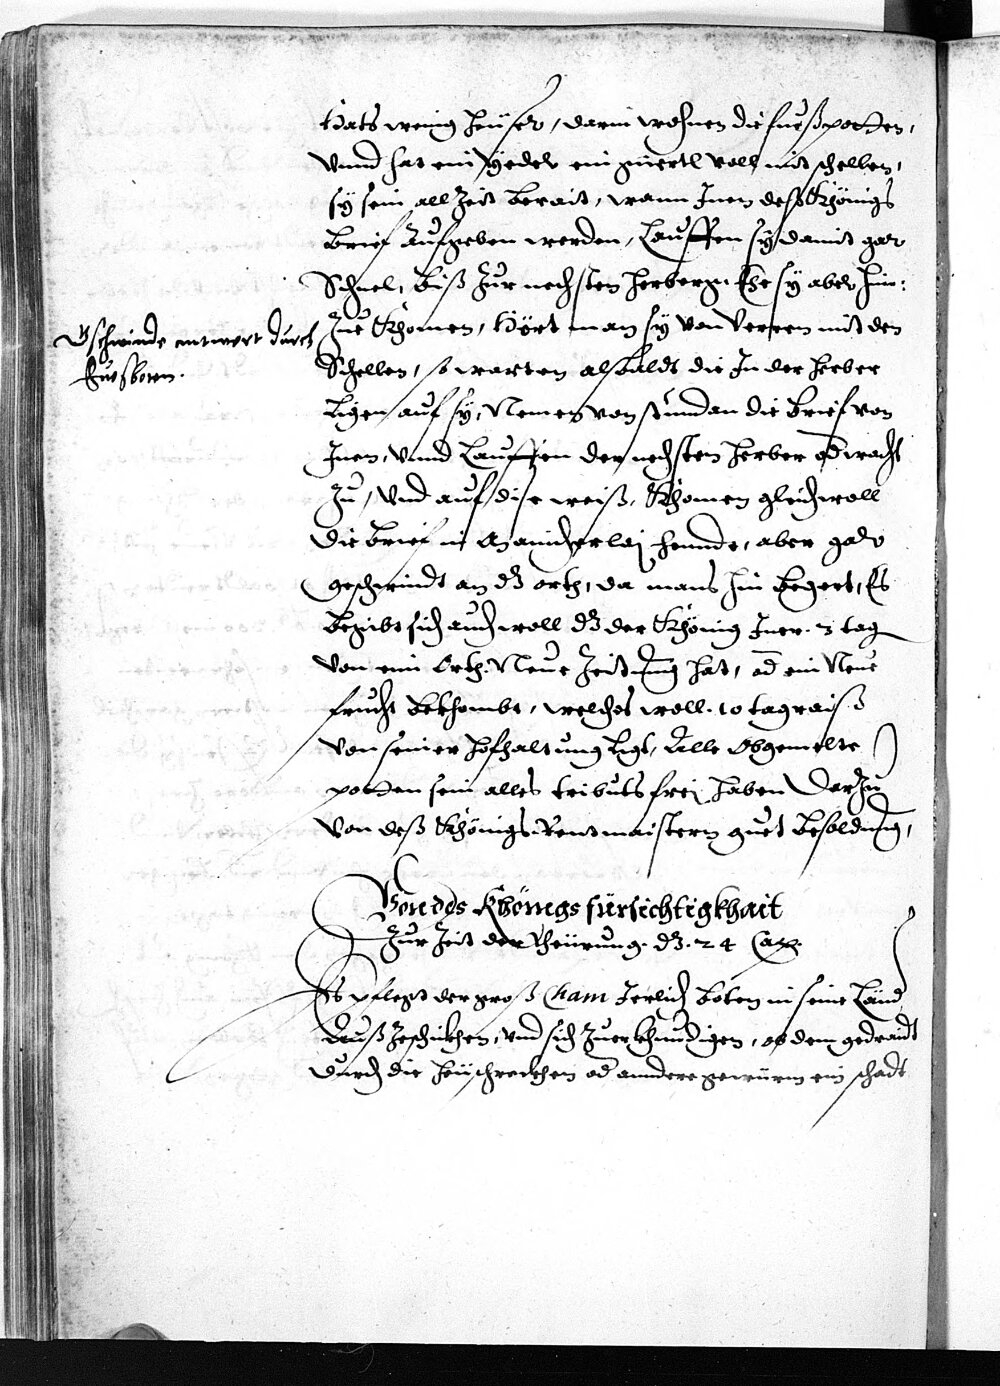 Hats wenig heüser, darin wohnen die fueßpotten,
Vnnd hat ein Jeder ein guertl voll mit schellen,
sÿ sein all Zeit berait, wann Inen deß Khönigs
brief Aufgeben werden, Lauffen sÿ damit gar
Schnel, biß Zur nechsten herberg. Ehe sÿ aber hin:
Zue Khomen, Hört man sÿ von verren mit den
Schellen, so warten alßbaldt die In der herber
Ligen auf sÿ, Nemen von stundan die brief von
Inen, Vnnd Lauffen der nechsten herber od wacht
Zu, Vnd auf dise weiß, Khomen gleichwoll
die brief in Manicherlaj hennde, aber gar
geschwindt an dz orth, da mans hin begert, Es
begibt sich auch woll dz der Khönig Iner. 3 tag
Von eim Orth. Neue Zeitung hat, od ein Neue
frucht bekhombt, welches woll. 10 tagraiß
Von seiner hofhaltung ligt, Alle Obgemelte
potten sein alles tributs frej haben Darzu
Von deß Khönigs Rentmaistern guet besoldung,
Gschwinde antwort durch
Fuesboten.
Von des Khönigs fürsichtigkhait
Zur Zeit der Theürung. dz. 24 Cap.
Es pflegt der groß Cham Jerlich boten in seine Länd
Auß Zeschickhen, vnd sich Zuerkhundigen, ob dem gedraidt
durch die heüschreckhen od anndere gewürm ein schadt